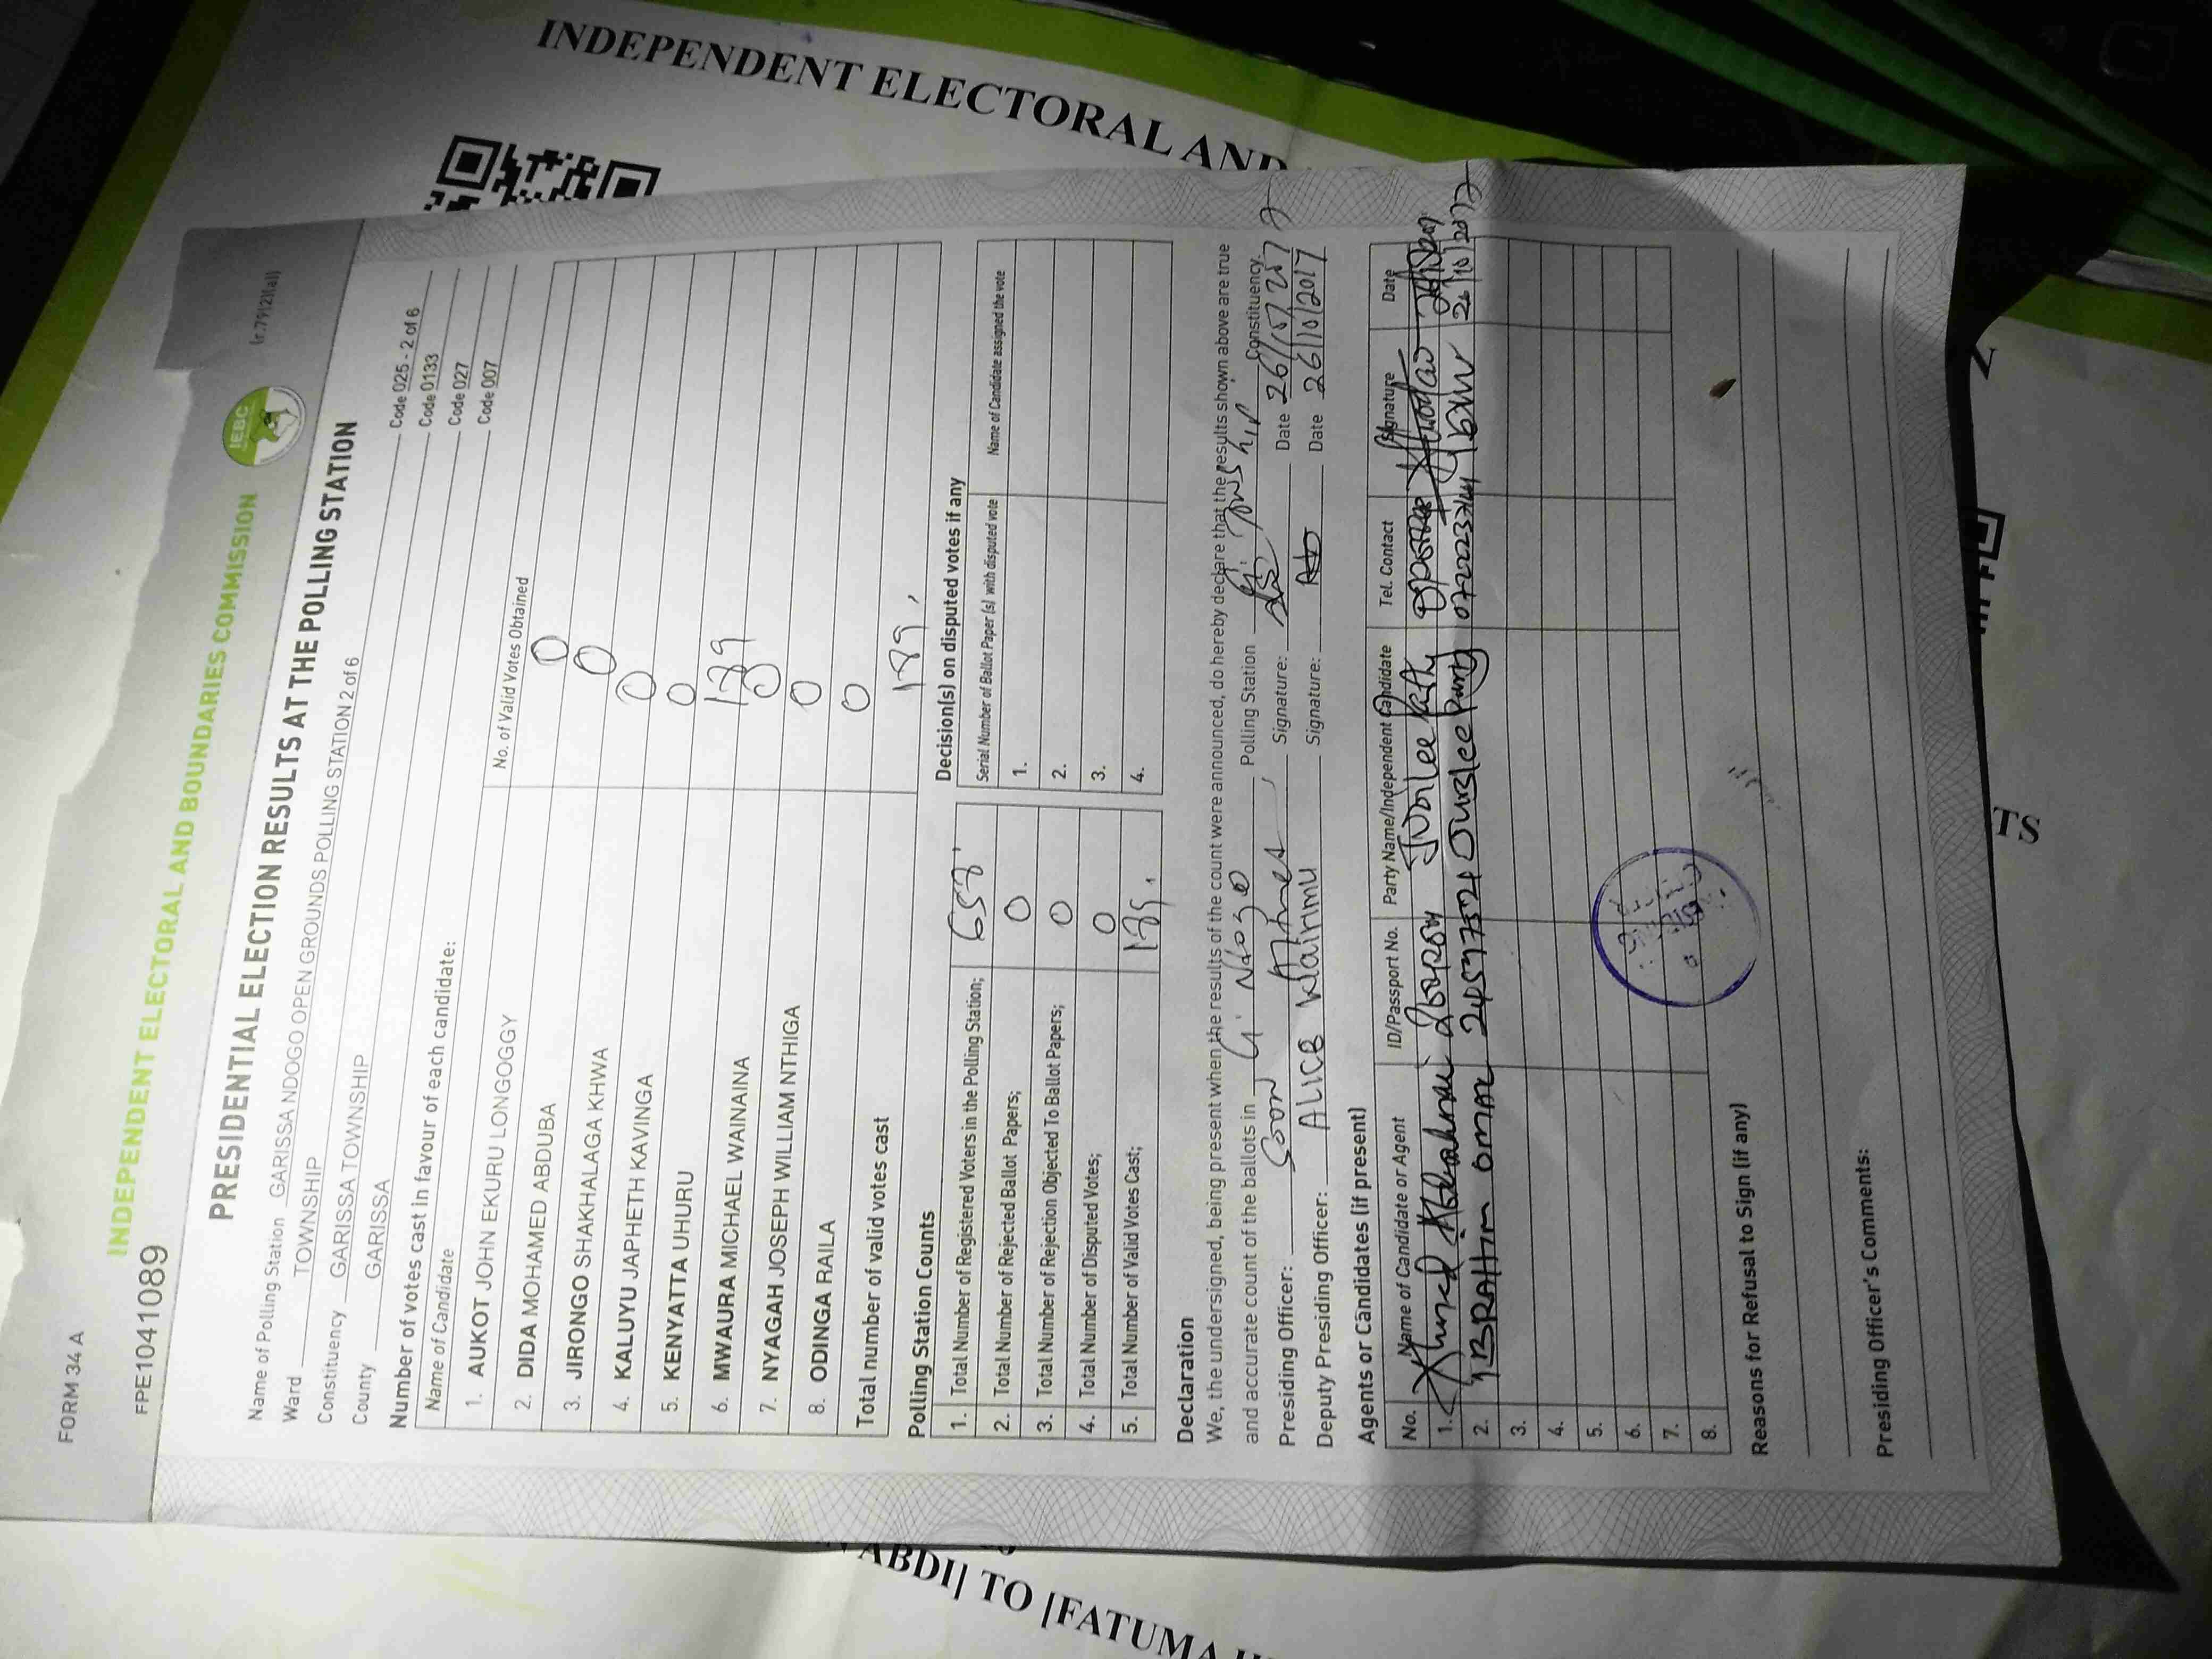 INDEPENDENT ELECTORAL AND
FORM 34 A
(r.79(2)(a))
FPE1041089
INDEPENDENT ELECTORAL AND BOUNDARIES COMMISSION
IEBC
PRESIDENTIAL ELECTION RESULTS AT THE POLLING STATION
Name of Polling Station GARISSA NDOGO OPEN GROUNDS POLLING STATION 2 of 6 Code 025 - 2 of 6
Ward TOWNSHIP Code 0133
Constituency GARISSA TOWNSHIP Code 027
County GARISSA Code 007
Number of votes cast in favour of each candidate:
Name of Candidate No. of Valid Votes Obtained
1. AUKOT JOHN EKURU LONGOGGY 0
2. DIDA MOHAMED ABDUBA 0
3. JIRONGO SHAKHALAGA KHWA 0
4. KALUYU JAPHETH KAVINGA 0
5. KENYATTA UHURU 189
6. MWAURA MICHAEL WAINAINA 0
7. NYAGAH JOSEPH WILLIAM NTHIGA 0
8. ODINGA RAILA 0
Total number of valid votes cast 189
Polling Station Counts
Decision(s) on disputed votes if any
1. Total Number of Registered Voters in the Polling Station;
2. Total Number of Rejected Ballot Papers; 0
3. Total Number of Rejection Objected To Ballot Papers; 0
4. Total Number of Disputed Votes; 0
5. Total Number of Valid Votes Cast; 189
Serial Number of Ballot Paper (s) with disputed vote Name of Candidate assigned the vote
1.
2.
3.
4.
Declaration
We, the undersigned, being present when the results of the count were announced, do hereby declare that the results shown above are true
and accurate count of the ballots in Polling Station Constituency.
Presiding Officer: Signature: Date 26/10/2017
Deputy Presiding Officer: ALICE WAIRIMU Signature: Date 26/10/2017
Agents or Candidates (if present)
No. Name of Candidate or Agent ID/Passport No. Party Name/Independent Candidate Tel. Contact Signature Date
1. Ahmed Party
2. IBRAHIM OMAR Party 26/10/2017
3.
4.
5.
6.
7.
8.
Reasons for Refusal to Sign (if any)
Presiding Officer's Comments:
ABDI] TO [FATUMA
TS